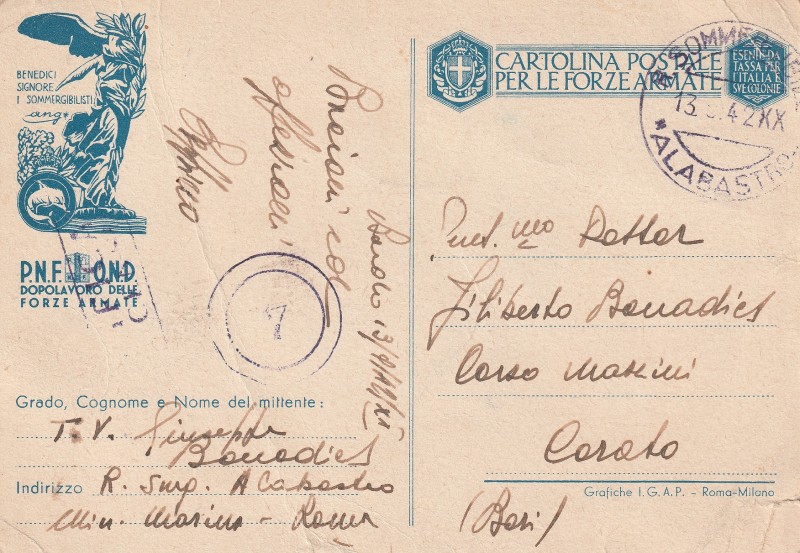 BENEDICI
SIGNORE
I SOMMERGIBILISTI
P.N.F. O.N.D.
DOPOLAVORO DELLE
FORZE ARMATE
CARTOLINA POSTALE
PER LE FORZE ARMATE
ESENTE DA
TASSA PER
L'ITALIA E
SUE COLONIE
ALABASTRO
7
Bacioni ed
affettuosi
Grado, Cognome e Nome del mittente:
T. V. Giuseppe
Bonadies
Indirizzo R. Smg. Alabastro
Min. Marina - Roma
Dottor
Filiberto Bonadies
Corso Mazzini
Corato
(Bari)
Grafiche I.G.A.P. - Roma-Milano